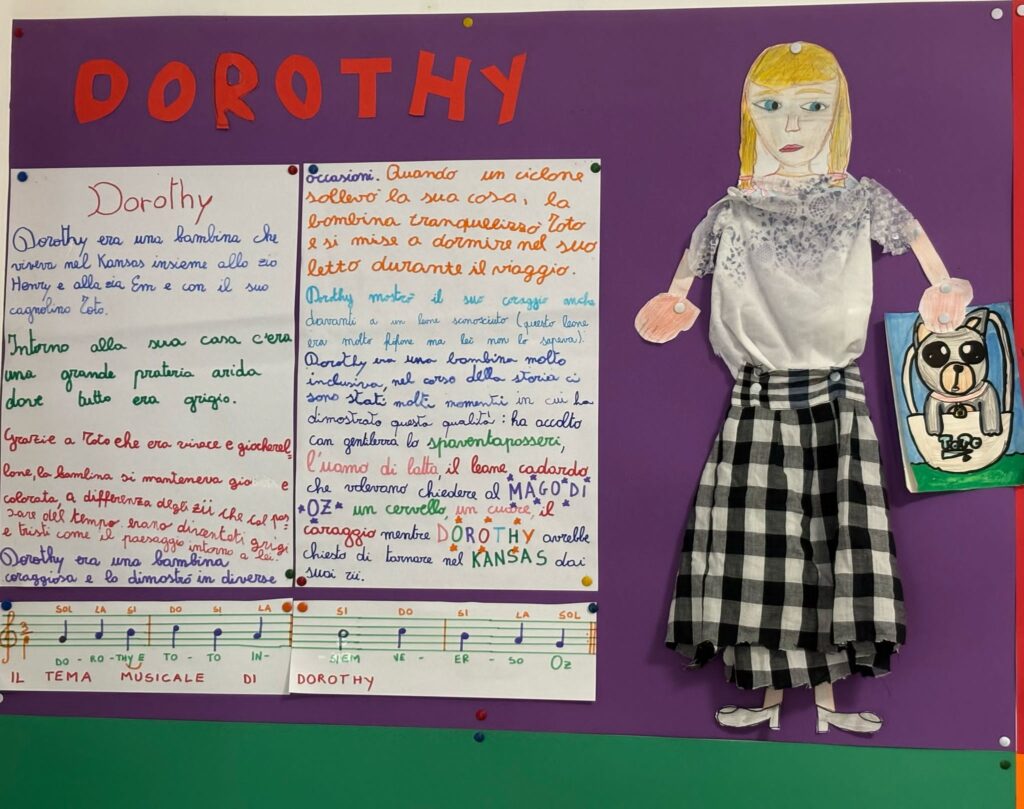 DOROTHY
Dorothy
Dorothy era una bambina che
viveva nel Kansas insieme allo zio
Henry e alla zia Em e con il suo
cagnolino Toto.
Intorno alla sua casa c'era
una grande prateria arida
dove tutto era grigio.
Grazie a Toto che era vivace e giocherel-
lone, la bambina si manteneva gio e
colorata, a differenza degli zii che col pas-
sare del tempo erano diventati grigi
e tristi come il paesaggio intorno a lei.
Dorothy era una bambina
coraggiosa e lo dimostrò in diverse
occasioni. Quando un ciclone
sollevò la sua casa, la
bambina tranquillizzò Toto
e si mise a dormire nel suo
letto durante il viaggio.
Dorothy mostrò il suo coraggio anche
davanti a un leone sconosciuto (questo leone
era molto fifone ma lei non lo sapeva).
Dorothy era una bambina molto
inclusiva, nel corso della storia ci
sono stati molti momenti in cui ha
dimostrato questa qualità: ha accolto
con gentilezza lo spaventapasseri,
l'uomo di latta, il leone codardo
che volevano chiedere al MAGO DI
OZ un cervello, un cuore, il
coraggio mentre DOROTHY avrebbe
chiesto di tornare nel KANSAS dai
suoi zii.
SOL LA SI DO SI LA SI DO SI LA SOL
3
DO - RO - THY E TO - TO IN - SIEM VE - ER - SO OZ
IL TEMA MUSICALE DI DOROTHY